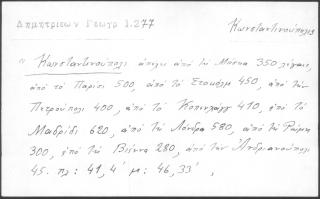 Δημητριέων Γεωγρ 1.277
Κωνσταντινούπολις
" Κωνσταντινούπολι απέχει από την Μόσκα 350 λεύγαις,
από το Παρίσι 500, από το Στοκόλμ 450, από την
Πετρούπολι 400, από το Κοπενχάγκ 410, από το
Μαδρίδι 620, από την Λόνδρα 580, από την Ρώμη
300, από την Βιέννα 280, από την Ανδριανούπολι
45. πλ: 41, 4' μ: 46, 33' ,